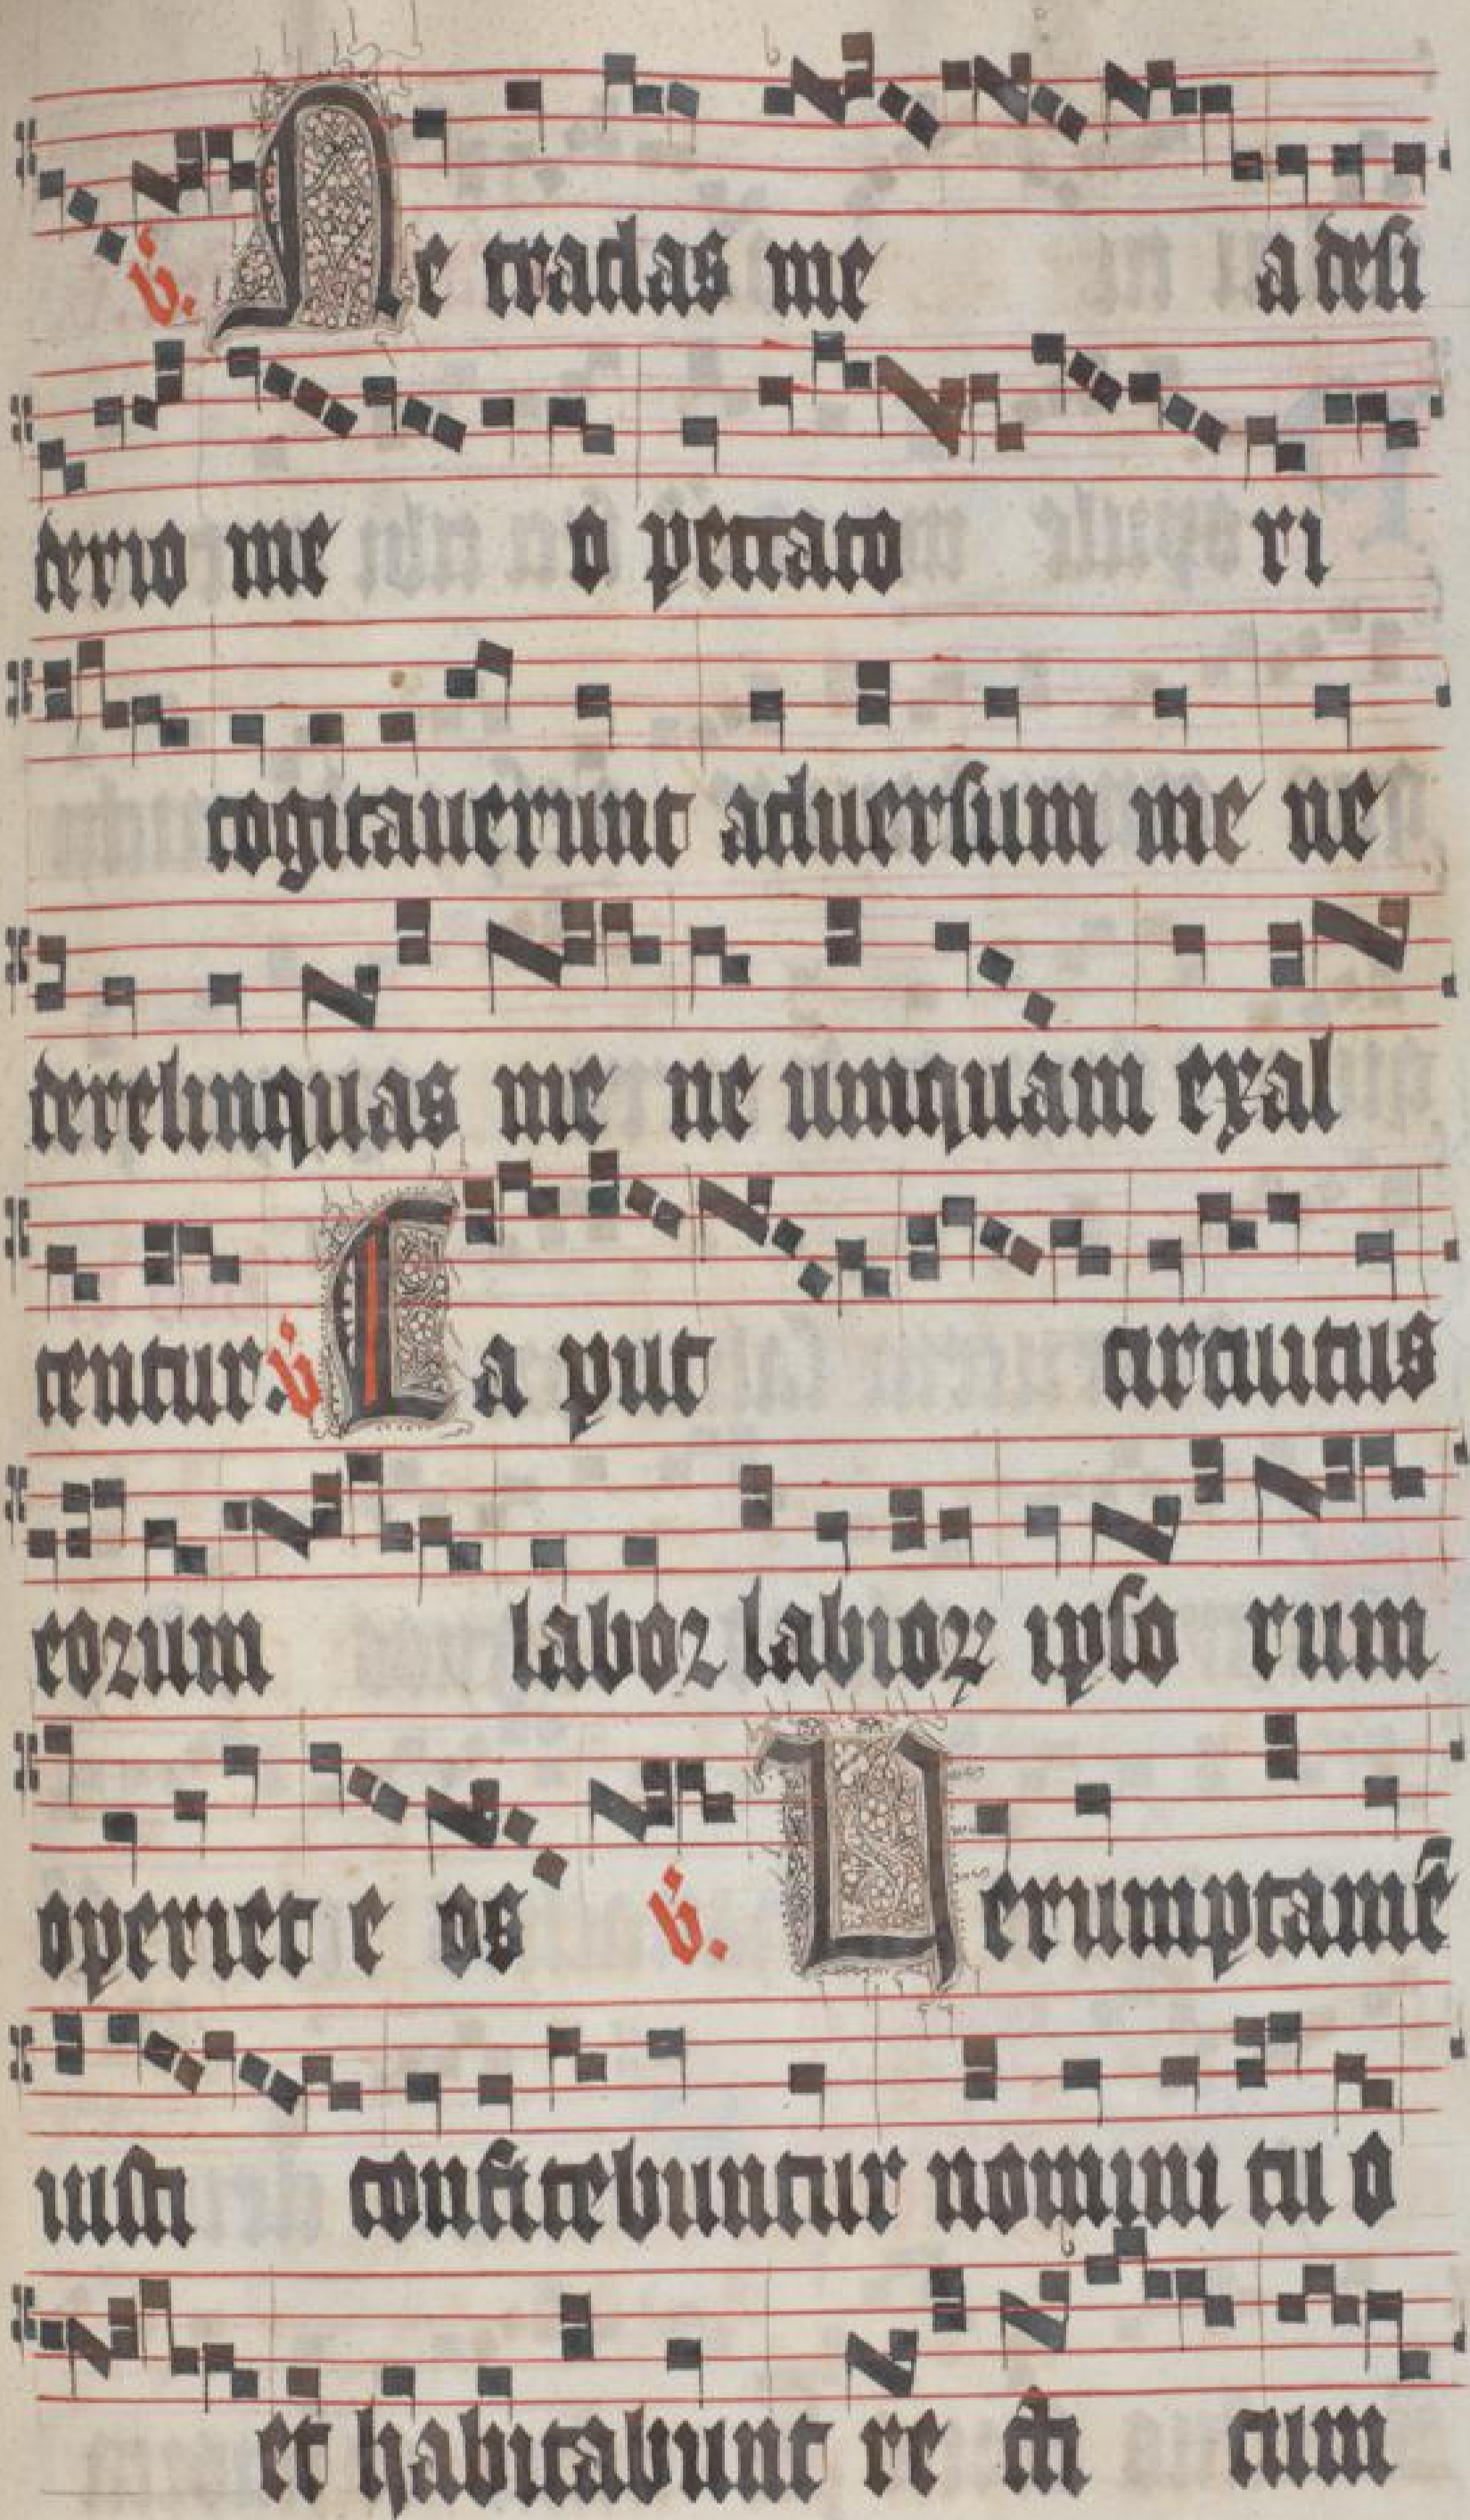 v. Ne tradas me a desi
derio me o peccato ri
cogitauerunt aduersum me ne
derelinquas me ne umquam exal
tentur. v Ca put circuitus
eorum labor labioꝝ ipso rum
operiet e os v. Uerumptamē
iusti confitebuntur nomini tu o
et habitabunt re cti cum